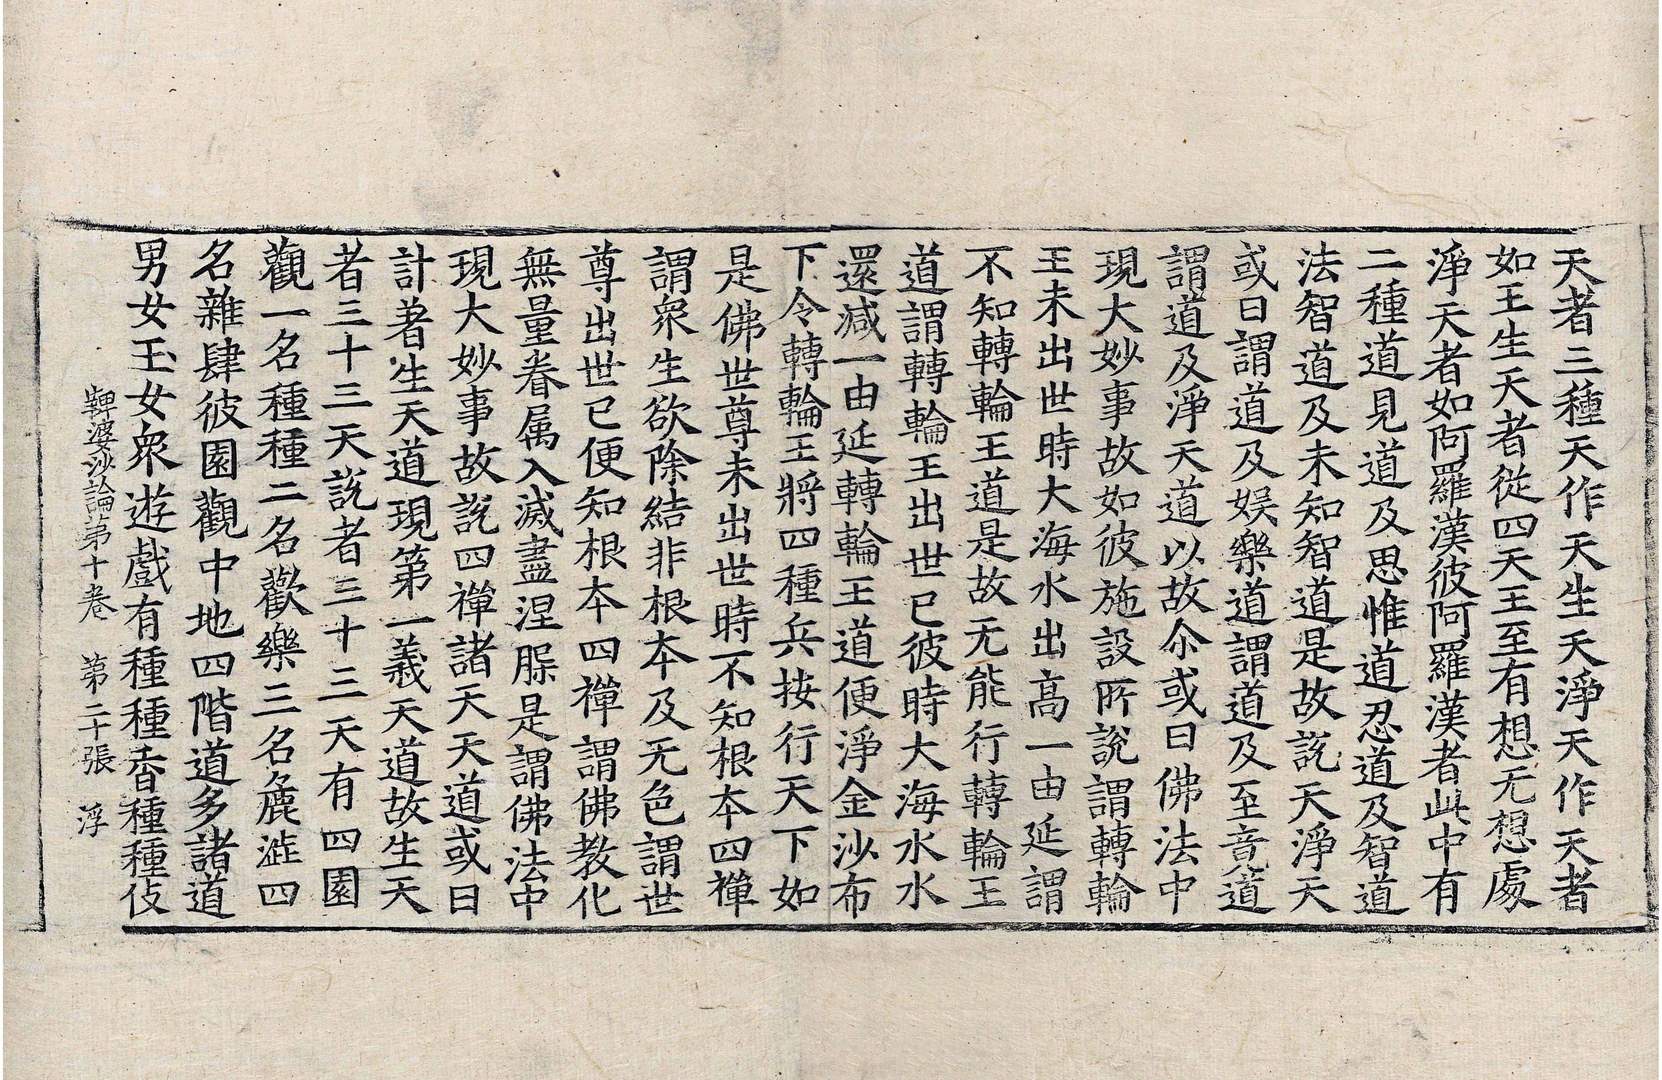 天者三種天作天生天淨天作天者
如王生天者從四天王至有想无想處
淨天者如阿羅漢彼阿羅漢者此中有
二種道見道及思惟道忍道及智道
法智道及未知智道是故說天淨天
或曰謂道及娛樂道謂道及至竟道
謂道及淨天道以故尒或曰佛法中
現大妙事故如彼施設所說謂轉輪
王未出世時大海水出高一由延謂
不知轉輪王道是故无能行轉輪王
道謂轉輪王出世已彼時大海水水
還減一由延轉輪王道便淨金沙布
下令轉輪王將四種兵按行天下如
是佛世尊未出世時不知根本四禪
謂衆生欲除結非根本及无色謂世
尊出世已便知根本四禪謂佛教化
無量眷属入滅盡涅槃是謂佛法中
現大妙事故說四禪諸天天道或曰
計著生天道現第一義天道故生天
者三十三天說者三十三天有四園
觀一名種種二名歡樂三名麁澁四
名雜肆彼園觀中地四階道多諸道
男女玉女衆遊戲有種種香種種伎
鞞婆沙論第十卷 第二十張 浮